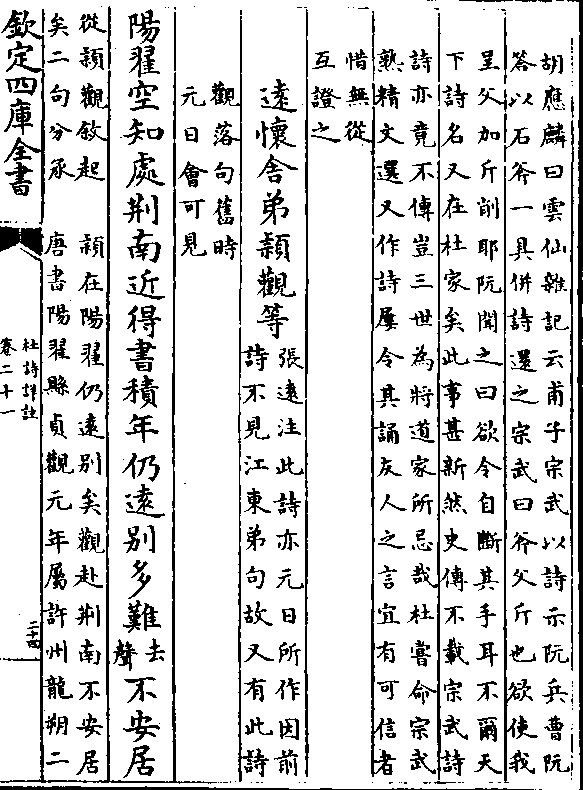 胡應麟曰雲仙雜記云甫子宗武以詩示阮兵曹阮
答以石斧一具併詩還之宗武曰斧父斤也欲使我
呈父加斤削耶阮聞之曰欲令自斷其手耳不爾天
下詩名又在杜家矣此事甚新然史傳不載宗武詩
詩亦竟不傳豈三世為將道家所忌哉杜嘗命宗武
熟精文選又作詩屢令其誦友人之言宜有可信者
惜無從
互證之
遠懷舍弟頴觀等
張遠注此詩亦元日所作因前
詩不見江東弟句故又有此詩
觀落句舊時
元日會可見
陽翟空知處荆南近得書積年仍遠別多難
去
聲
不安居
從頴觀敘起
頴在陽翟仍遠別矣觀赴荆南不安居
矣二句分承
唐書陽翟縣貞觀元年屬許州龍朔二
欽定四庫全書
杜詩詳註
卷二十一
二十四